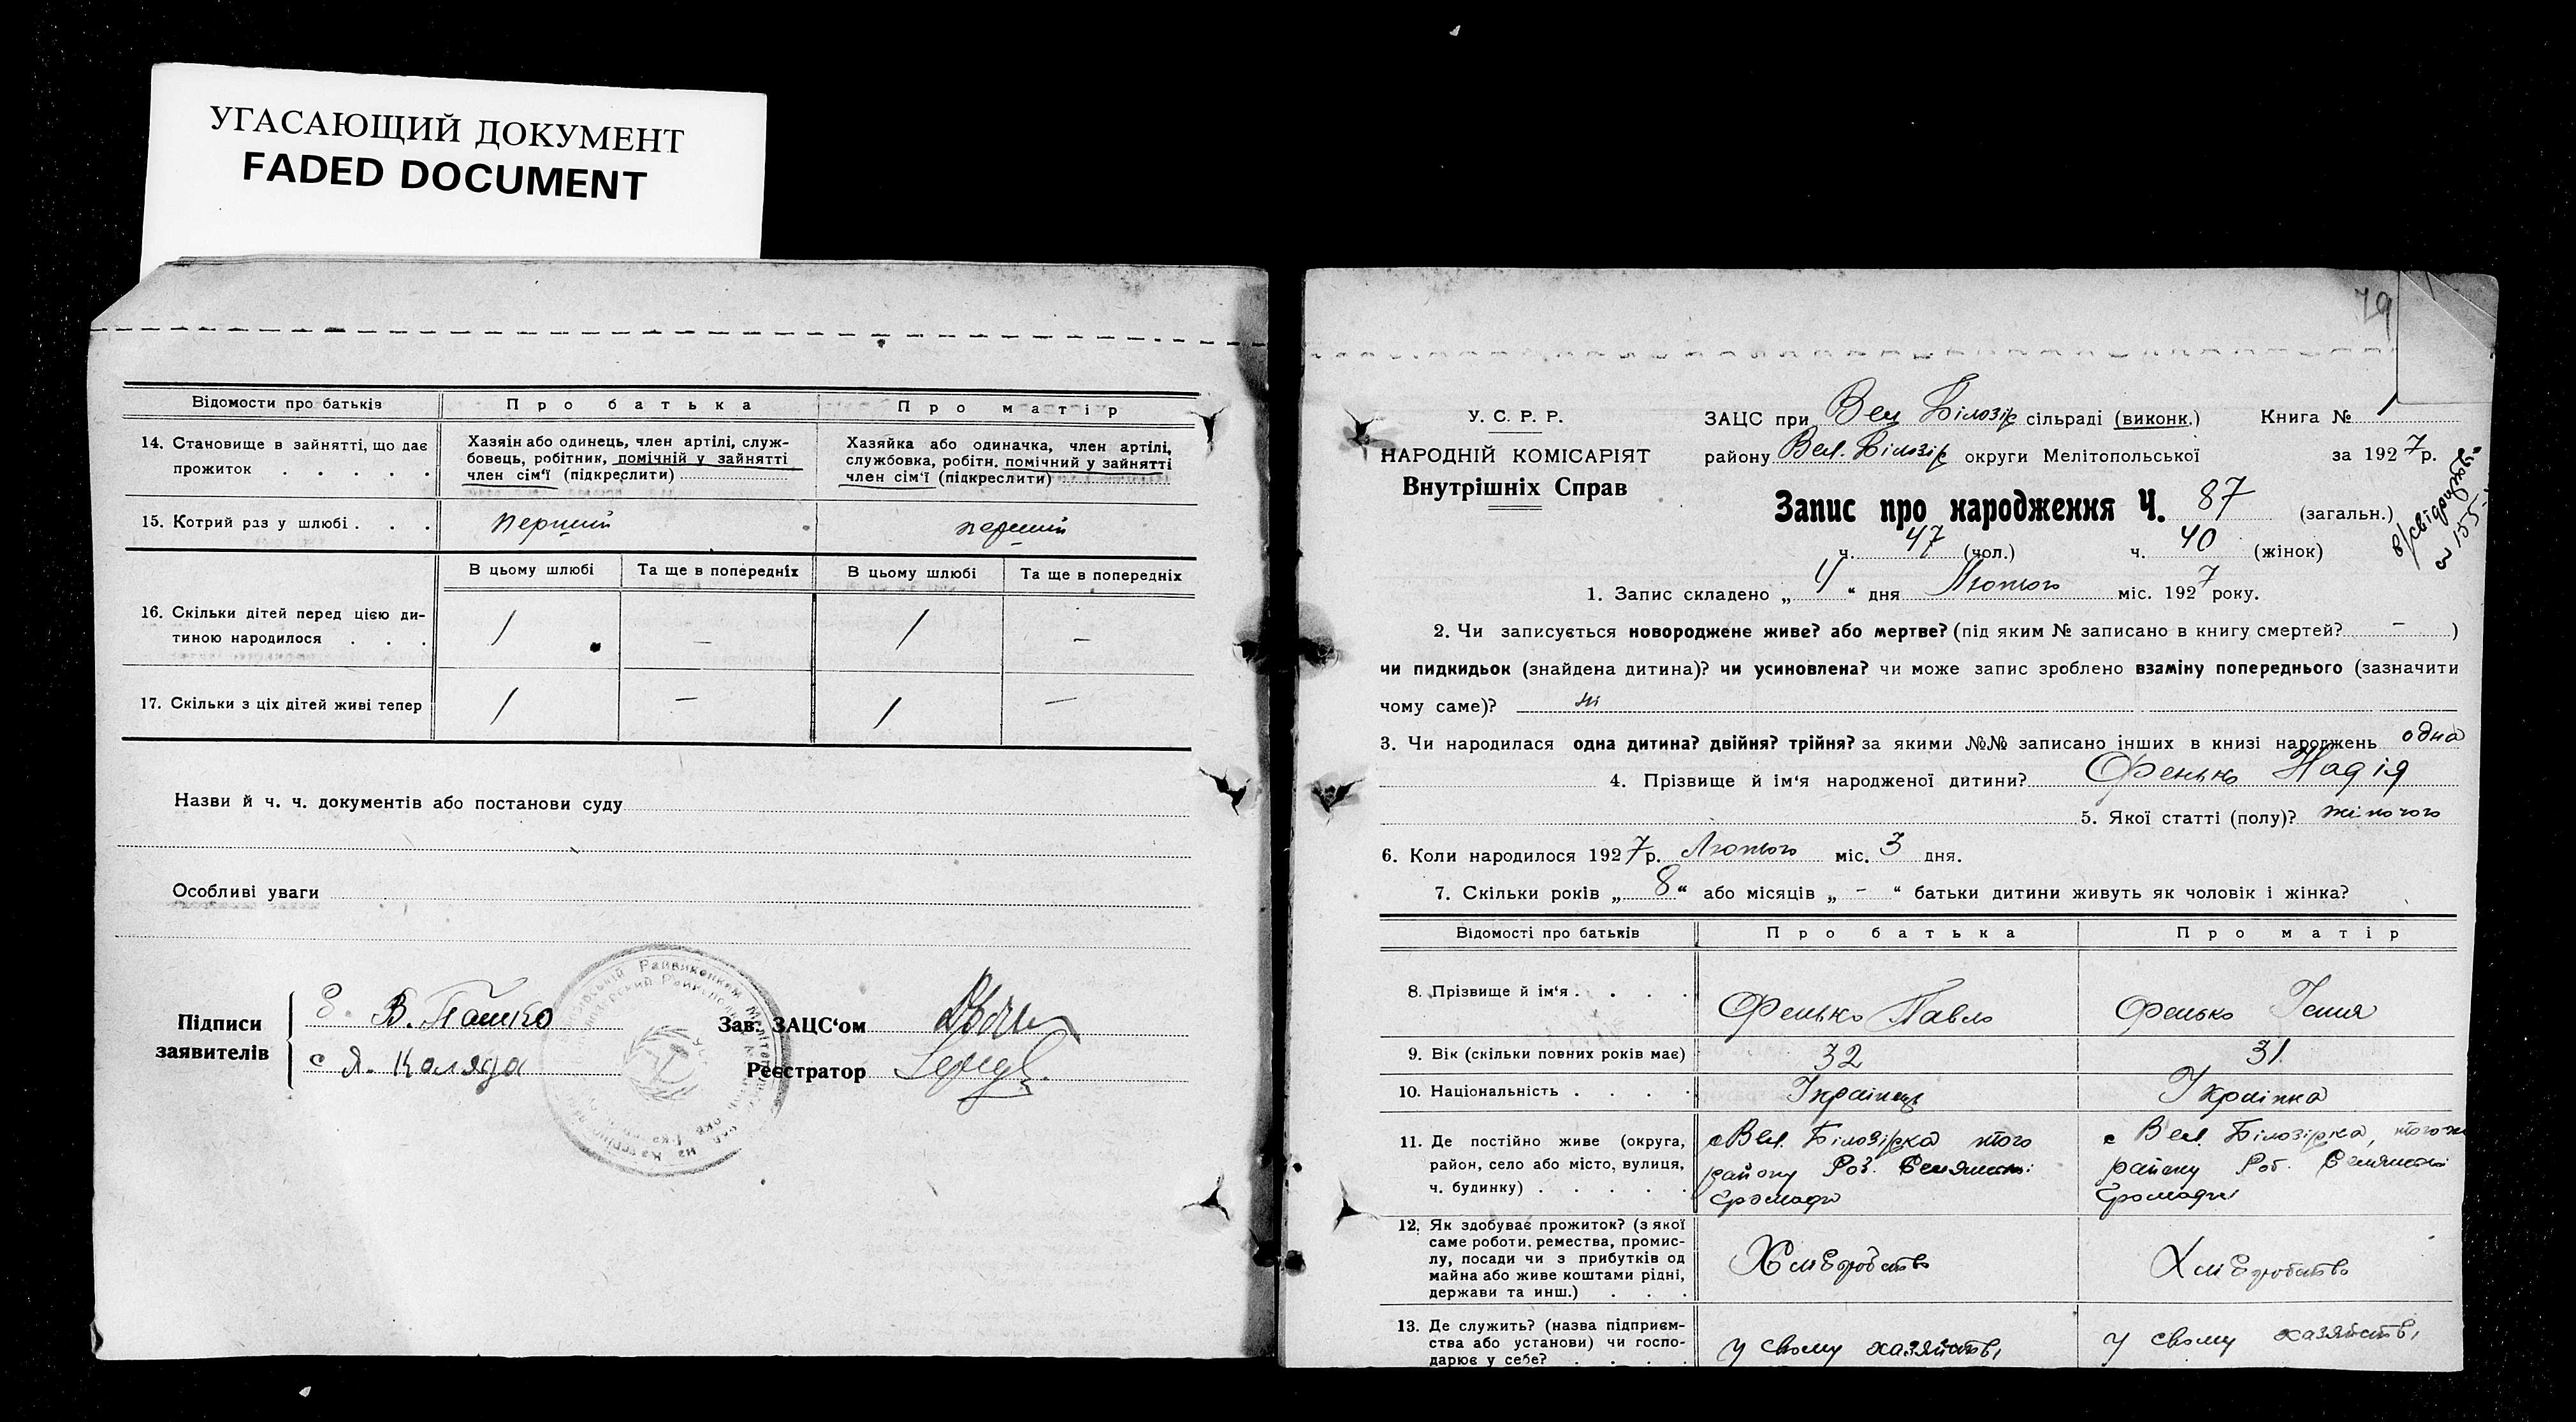 УГАСАЮЩИЙ ДОКУМЕНТ
FADED DOCUMENT
Відомости про батьків Про батька Про матір
14. Становище в зайнятті, що дає прожиток . . . . .
Хазяін або одинець, член артілі, служ-
бовець, робітник, помічній у зайнятті
член сім‘ї (підкреслити)
Хазяйка або одиначка, член артілі,
службовка, робітн. помічний у зайнятті
член сім‘ї (підкреслити)
15. Котрий раз у шлюбі . . . перший перший
В цьому шлюбі Та ще в попередніх В цьому шлюбі Та ще в попередніх
16. Скільки дітей перед цією ди-
тиною народилося . . . 1 — 1 —
17. Скільки з ціх дітей живі тепер 1 — 1 —
Назви й ч. ч. документів або постанови суду
Особливі уваги
Підписи
заявителів
В. Пашко
Я. Коляда
Зав. ЗАЦС‘ом
Реєстратор
79
У. С. Р. Р.
НАРОДНІЙ КОМІСАРІЯТ
Внутрішніх Справ
ЗАЦС при Вел Білозір сільраді (виконк.) Книга № 1
району Вел. Білозір округи Мелітопольської за 1927р.
Запис про народження Ч. 87 (загальн.)
ч. 47 (чол.) ч. 40 (жінок)
1. Запис складено „ 4 “ дня Лютого міс. 1927 року.
2. Чи записується новороджене живе? або мертве? (під яким № записано в книгу смертей? — )
чи пидкидьок (знайдена дитина)? чи усиновлена? чи може запис зроблено взаміну попереднього (зазначити
чому саме)? ні
3. Чи народилася одна дитина? двійня? трійня? за якими №№ записано інших в книзі народжень одна
4. Прізвище й ім‘я народженої дитини? Фенько Надія
5. Якої статті (полу)? жіночого
6. Коли народилося 1927р. Лютого міс. 3 дня.
7. Скільки років „ 8 “ або місяців „ - “ батьки дитини живуть як чоловік і жінка?
Відомості про батьків Про батька Про матір
8. Прізвище й ім‘я . . . . Фенько Павло Фенько
9. Вік (скільки повних років має) 32 31
10. Національність . . . . Українець Українка
11. Де постійно живе (округа,
район, село або місто, вулиця,
ч. будинку) . . . . .
с Вел. Білозірка того
району Роз. Селянсткі
Громади
с Вел. Білозірка, того ж
району Роз. Селянсткі
Громади
12. Як здобуває прожиток? (з якої
саме роботи. ремества, промис-
лу, посади чи з прибутків од
майна або живе коштами рідні,
держави та инш.) . . .
Хліборобство Хліборобство
13. Де служить? (назва підприєм-
ства або установи) чи госпо-
дарює у себе? . . . .
у свому хазяйстві у свому хазяйстві